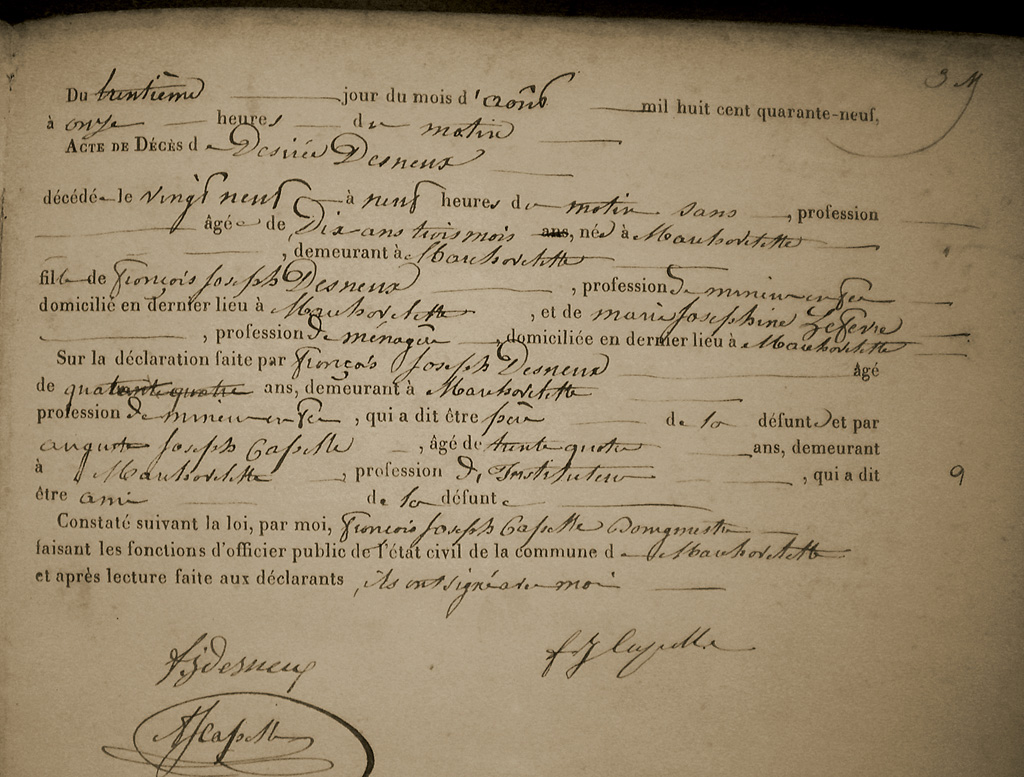 3 M
Du trentième jour du mois d'août mil huit cent quarante-neuf,
à onze heures du matin
ACTE DE DÉCÈS de Desirée Desneux
décédée le vingt neuf à neuf heures du matin sans , profession
âgée de Dix ans trois mois ans, née à
, demeurant à
fille de François Joseph Desneux , profession de mineur en fer
domicilié en dernier lieu à , et de marie Josephine Lefevre
, profession de ménagère , domiciliée en dernier lieu à
Sur la déclaration faite par François Joseph Desneux âgé
de quarante quatre ans, demeurant à
profession de mineur en fer , qui a dit être père de la défunte et par
auguste Joseph Capelle , âgé de trente quatre ans, demeurant
à , profession d'Instituteur , qui a dit
être ami de la défunte
9
Constaté suivant la loi, par moi, François Joseph Capelle Bourgmestre
faisant les fonctions d'officier public de l'état civil de la commune de
et après lecture faite aux déclarants , ils ont signé avec moi
f j Desneux
f J Capelle
A J Capelle